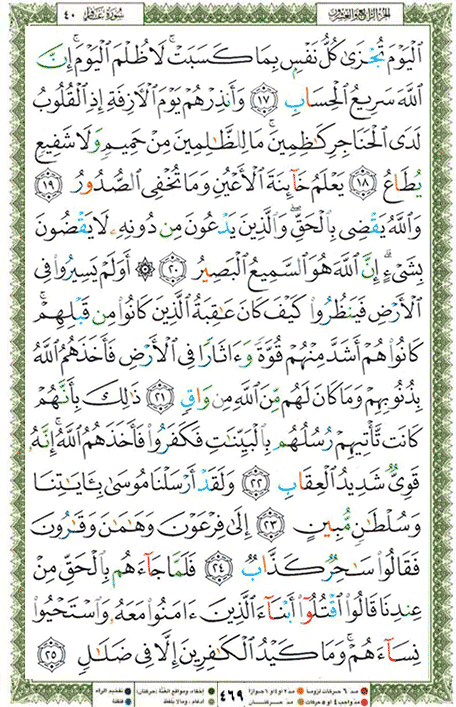 الجزء الرابع والعشرون
سورة غافر ٤٠
ٱلۡيَوۡمَ تُجۡزَىٰ كُلُّ نَفۡسِۭ بِمَا كَسَبَتۡۚ لَا ظُلۡمَ ٱلۡيَوۡمَۚ إِنَّ
ٱللَّهَ سَرِيعُ ٱلۡحِسَابِ ١٧ وَأَنذِرۡهُمۡ يَوۡمَ ٱلۡأٓزِفَةِ إِذِ ٱلۡقُلُوبُ
لَدَى ٱلۡحَنَاجِرِ كَٰظِمِينَۚ مَا لِلظَّٰلِمِينَ مِنۡ حَمِيمٖ وَلَا شَفِيعٖ
يُطَاعُ ١٨ يَعۡلَمُ خَآئِنَةَ ٱلۡأَعۡيُنِ وَمَا تُخۡفِي ٱلصُّدُورُ ١٩
وَٱللَّهُ يَقۡضِي بِٱلۡحَقِّۖ وَٱلَّذِينَ يَدۡعُونَ مِن دُونِهِۦ لَا يَقۡضُونَ
بِشَيۡءٍۗ إِنَّ ٱللَّهَ هُوَ ٱلسَّمِيعُ ٱلۡبَصِيرُ ٢٠ ۞ أَوَلَمۡ يَسِيرُواْ فِي
ٱلۡأَرۡضِ فَيَنظُرُواْ كَيۡفَ كَانَ عَٰقِبَةُ ٱلَّذِينَ كَانُواْ مِن قَبۡلِهِمۡۚ
كَانُواْ هُمۡ أَشَدَّ مِنۡهُمۡ قُوَّةٗ وَءَاثَارٗا فِي ٱلۡأَرۡضِ فَأَخَذَهُمُ ٱللَّهُ
بِذُنُوبِهِمۡ وَمَا كَانَ لَهُم مِّنَ ٱللَّهِ مِن وَاقٖ ٢١ ذَٰلِكَ بِأَنَّهُمۡ
كَانَت تَّأۡتِيهِمۡ رُسُلُهُم بِٱلۡبَيِّنَٰتِ فَكَفَرُواْ فَأَخَذَهُمُ ٱللَّهُۚ إِنَّهُۥ
قَوِيّٞ شَدِيدُ ٱلۡعِقَابِ ٢٢ وَلَقَدۡ أَرۡسَلۡنَا مُوسَىٰ بِـَٔايَٰتِنَا
وَسُلۡطَٰنٖ مُّبِينٍ ٢٣ إِلَىٰ فِرۡعَوۡنَ وَهَٰمَٰنَ وَقَٰرُونَ
فَقَالُواْ سَٰحِرٞ كَذَّابٞ ٢٤ فَلَمَّا جَآءَهُم بِٱلۡحَقِّ مِنۡ
عِندِنَا قَالُواْ ٱقۡتُلُوٓاْ أَبۡنَآءَ ٱلَّذِينَ ءَامَنُواْ مَعَهُۥ وَٱسۡتَحۡيُواْ
نِسَآءَهُمۡۚ وَمَا كَيۡدُ ٱلۡكَٰفِرِينَ إِلَّا فِي ضَلَٰلٖ ٢٥
مد ٦ حركات لزوما مد ٢ او ٤ او ٦ جوازا إخفاء، ومواقع الغنة (حركتان) تفخيم الراء
مد واجب ٤ او ٥ حركات مد حركتان ادغام، ومالا يلفظ قلقلة
٤٦٩